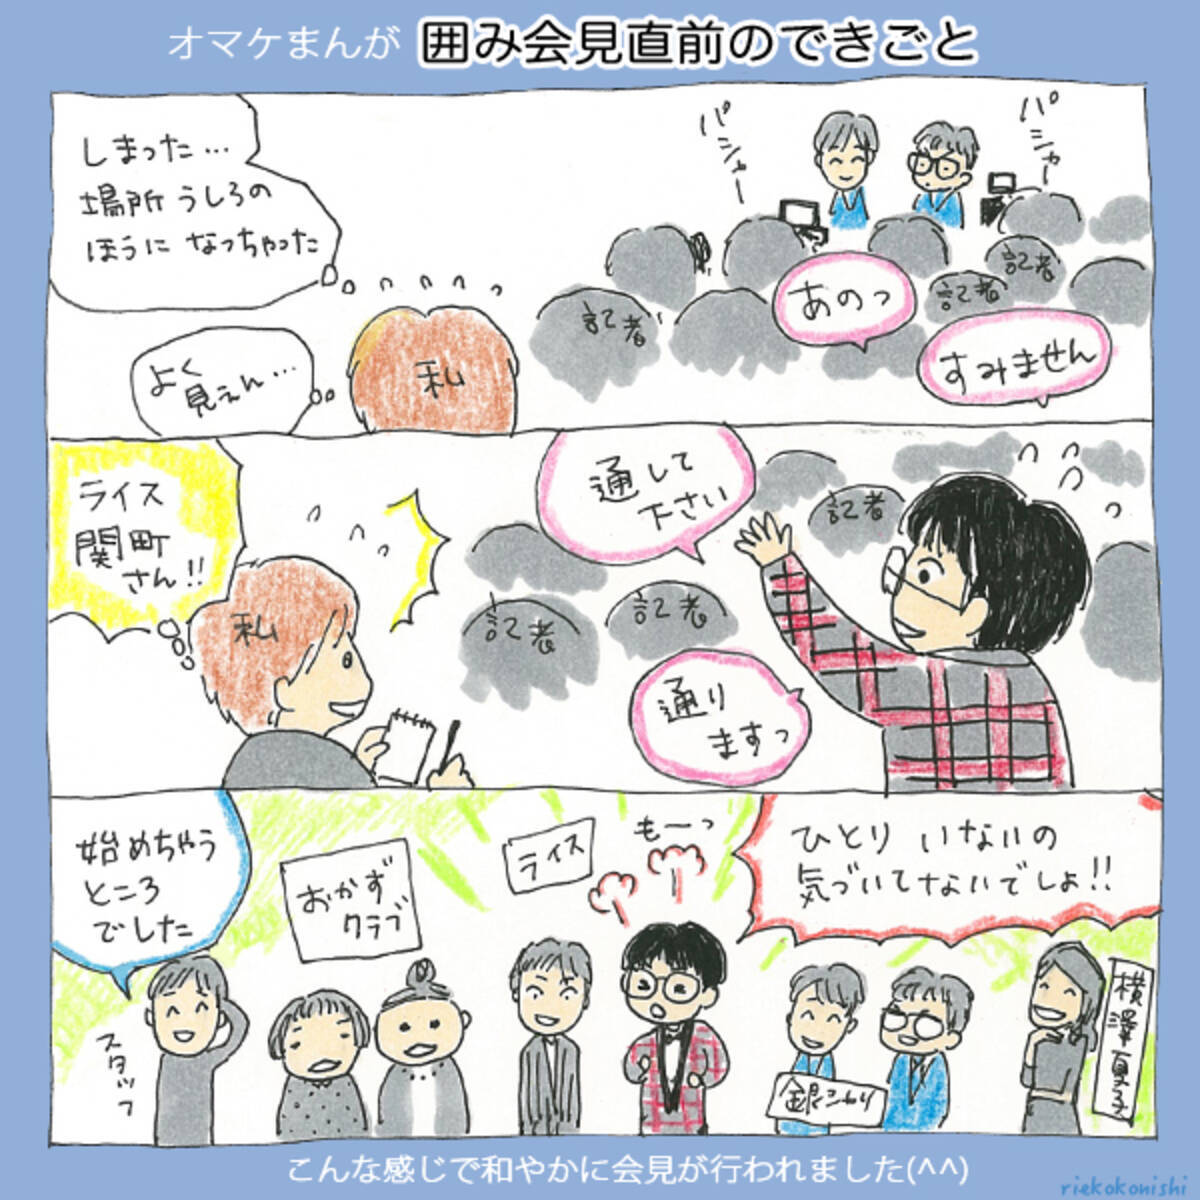 オマケまんが 囲み会見直前のできごと
しまった…
場所うしろの
ほうに なっちゃった
よく
見えん…
私
パシャー
パシャー
記者
記者
記者
あのっ
すみません
ライス
関町
さん!!
私
通して
下さい
記者
記者
記者
通り
ますっ
始めちゃう
ところ
でした
スタッフ
おかず
クラブ
ライス
もーっ
ひとり いないの
気づいてないでしょ!!
銀シャリ
横澤夏子
こんな感じで和やかに会見が行われました(^^)
riekokonishi